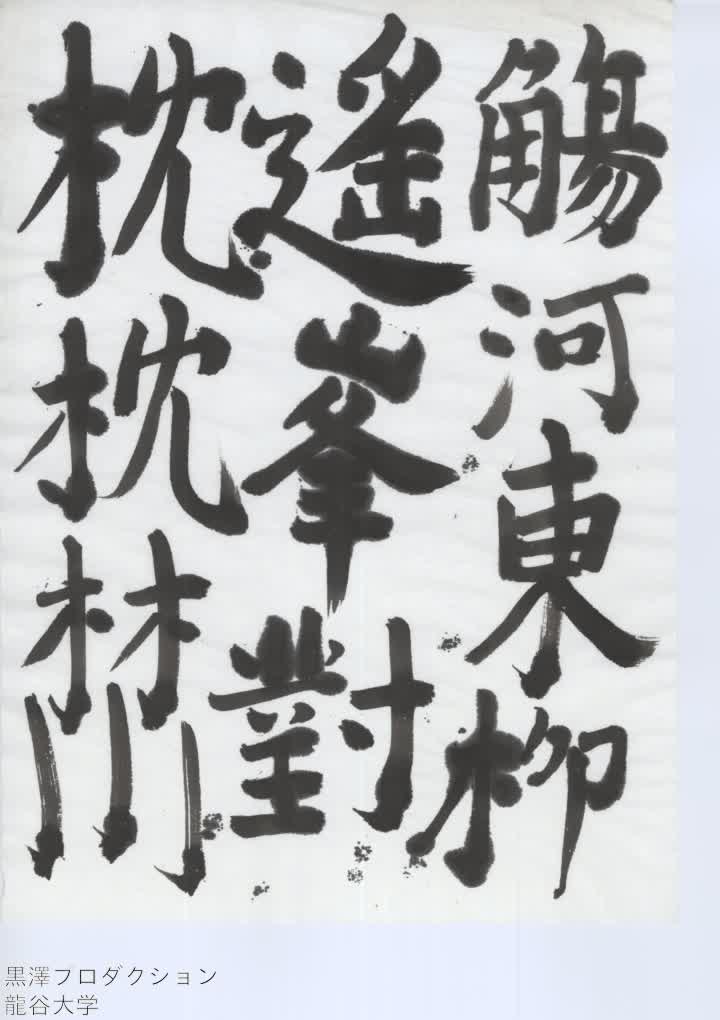 觴河東柳
遥峯對
枕枕林川
黒澤プロダクション
龍谷大学